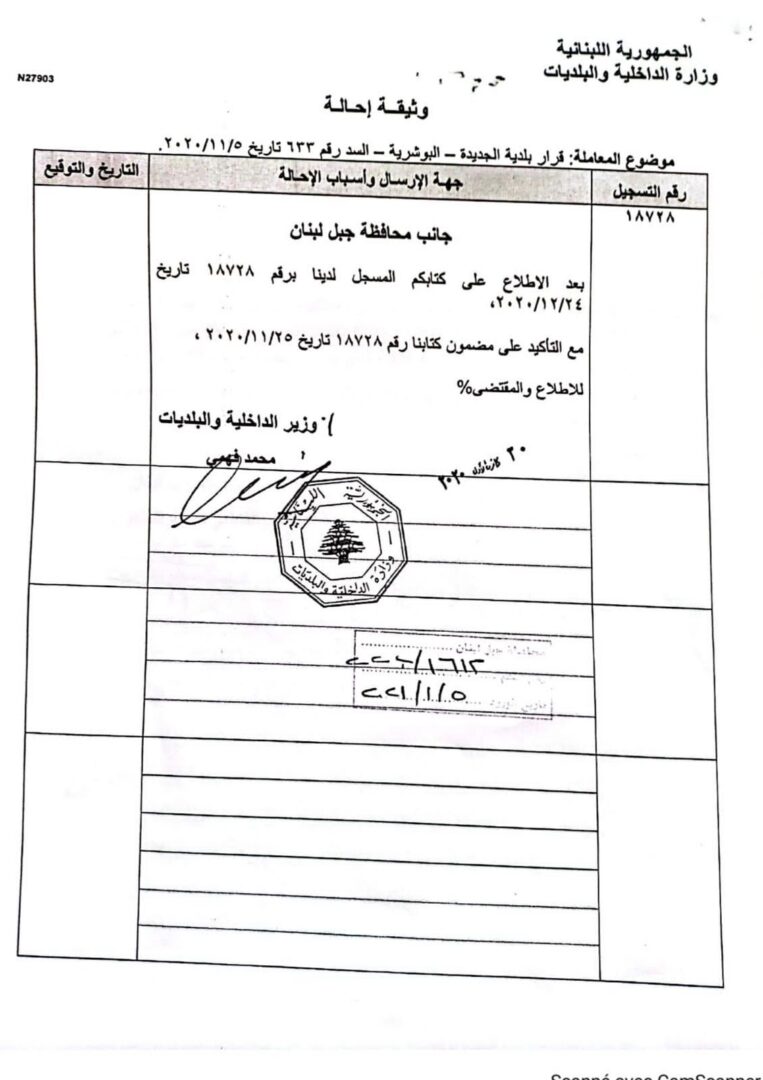 الجمهورية اللبنانية
وزارة الداخلية والبلديات
N27903
وثيقـة إحـالـة
موضوع المعاملة: قرار بلدية الجديدة – البوشرية – السد رقم ٦٣٣ تاريخ ٢٠٢٠/١١/٥.
رقم التسجيل
جهـة الإرسـال وأسباب الإحالة
التاريخ والتوقيع
١٨٧٢٨
جانب محافظة جبل لبنان
بعد الاطلاع على كتابكم المسجل لدينا برقم ١٨٧٢٨ تاريخ
٢٠٢٠/١٢/٢٤،
مع التأكيد على مضمون كتابنا رقم ١٨٧٢٨ تاريخ ٢٠٢٠/١١/٢٥ ،
للاطلاع والمقتضى%
وزير الداخلية والبلديات
محمد فهمي
٣٠ كانون الأول ٢٠٢٠
الجمهورية اللبنانية
وزارة الداخلية والبلديات
محافظة جبل لبنان
Scanné avec CamScanner